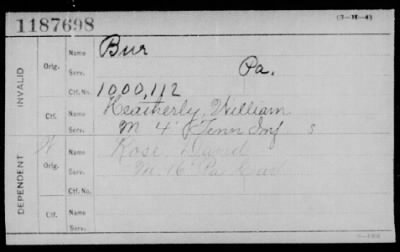 1187698
(3-H-4)
INVALID
Orig.
Name
Bur
Serv.
Pa.
Ctf. No.
1,000,112
Ctf.
Name
Heatherly, William
Serv.
M 4 Tenn Inf S
DEPENDENT
W
Orig.
Name
Rose, David
Serv.
M 16 Pa Cav
Ctf. No.
Ctf.
Name
Serv.